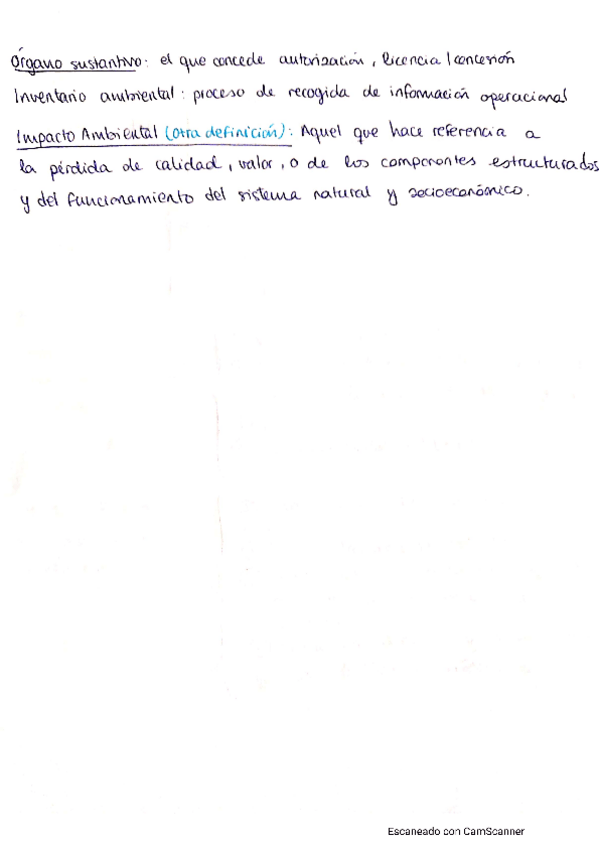 Órgano sustantivo: el que concede autorización, licencia/concesión
Inventario ambiental: proceso de recogida de información operacional
Impacto Ambiental (otra definición): Aquel que hace referencia a
la pérdida de calidad, valor, o de los componentes estructurados
y del funcionamiento del sistema natural y socioeconómico.
Escaneado con CamScanner